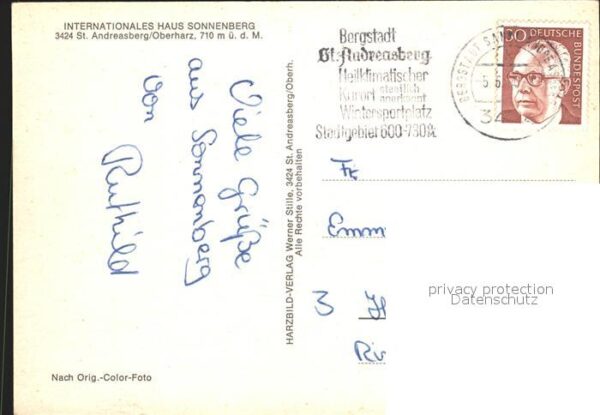 INTERNATIONALES HAUS SONNENBERG
3424 St. Andreasberg/Oberharz, 710 m ü. d. M.
Viele Grüße
aus Sonnenberg
von
Ruthild
Nach Orig.-Color-Foto
HARZBILD-VERLAG Werner Stille, 3424 St. Andreasberg/Oberh.
Alle Rechte vorbehalten
Bergstadt
St. Andreasberg
Heilklimatischer
Kurort staatlich
anerkannt
Wintersportplatz
Stadtgebiet 600-730m
DEUTSCHE
BUNDESPOST
Emm
3
privacy protection
Datenschutz